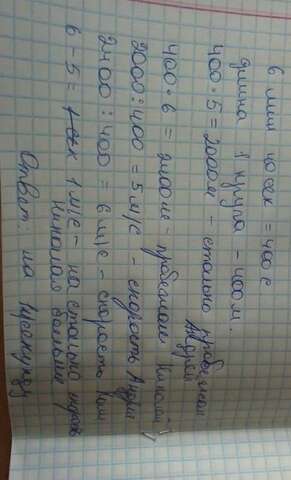 6 мин 40 сек = 400 с
длина 1 круга – 400 м.
400 · 5 = 2000 м – столько пробежал
Андрей
400 · 6 = 2400 м – пробежал Николай
2000 : 400 = 5 м/с – скорость Андр
2400 : 400 = 6 м/с – скорость Ник
6 – 5 = 1 м/с – на столько скорость
Николая больше
Ответ: на 1 м/секунду